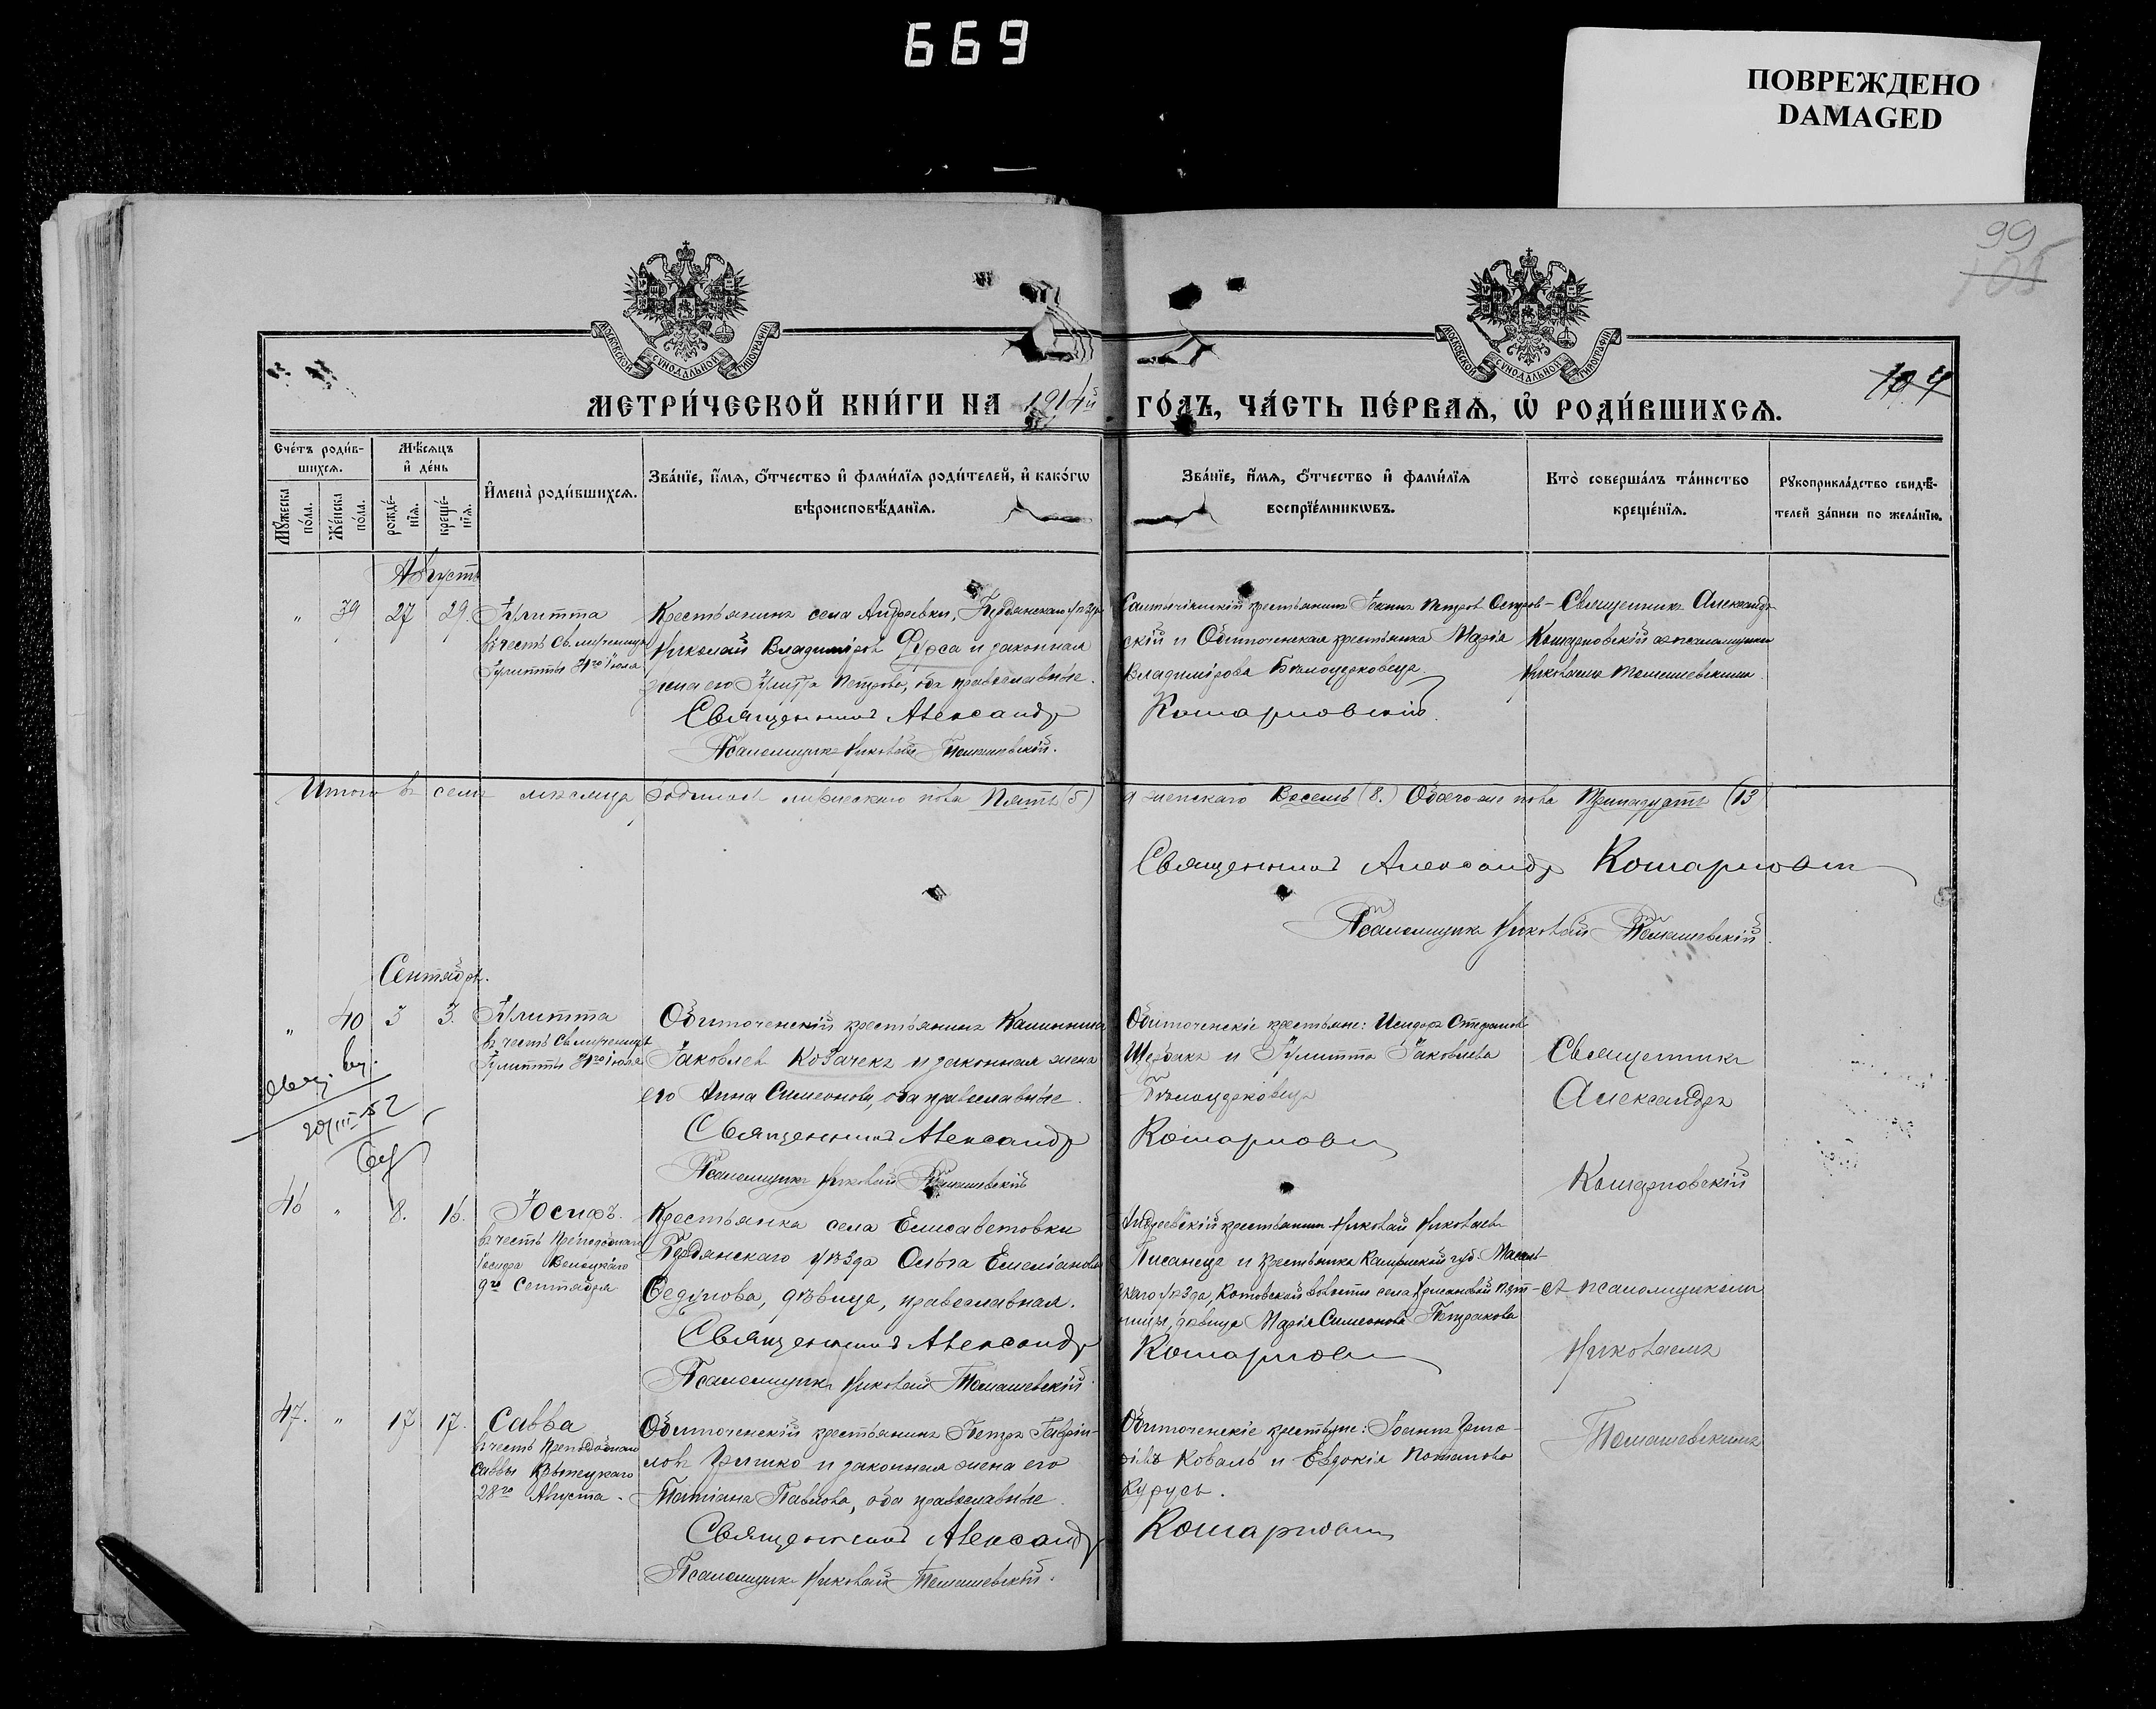 669
ПОВРЕЖДЕНО
DAMAGED
99
105
104
МОСКОВСКОЙ СѴНОДАЛЬНОЙ ТИПОГРАФІИ
МОСКОВСКОЙ СѴНОДАЛЬНОЙ ТИПОГРАФІИ
МЕТРИ́ЧЕСКОЙ КНИ́ГИ НА 1914й ГО́ДЪ, ЧА́СТЬ ПЕ́РВАѦ, Ѡ҆ РОДИ́ВШИХСѦ.
Сче́тъ роди́в-
шихсѧ.
Мꙋ́жеска по́ла.
Же́нска по́ла.
Мѣ́сѧцъ
и҆ де́нь
рожде́-
нїѧ.
креще́-
нїѧ.
И҆мена̀ роди́вшихсѧ.
Зва́нїе, и҆́мѧ, ѻ҆́тчество и҆ фами́лїѧ роди́телей, и҆ како́гѡ
вѣроисповѣ́данїѧ.
Зва́нїе, и҆́мѧ, ѻ҆́тчество и҆ фами́лїѧ
воспрїе́мникѡвъ.
Кто̀ соверша́лъ та́инство
креще́нїѧ.
Рꙋкоприкла́дство свидѣ́-
телей за́писи по жела́нїю.
Августъ
" 39 27 29. Іулитта
въ честь Св. мученицы
Іулитты
Крестьянинъ села Андреевки, Бердянскаго уѣзда
Николай Владиміровъ Фурса и законная
жена его Іулитта Петрова, оба православные.
Священникъ Александръ
Псаломщикъ Николай Томашевскій.
крестьянинъ Іоаннъ Петровъ Остров-
скій и Обиточенская крестьянка Марія
Владимірова Бѣлоцерковца
Кошарновскій
Священникъ Александръ
Кошарновскій съ псаломщикомъ
Николаемъ Томашевскимъ.
Итого въ семъ мѣсяцѣ родилось мужескаго пола Пять (5)
а женскаго Восемь (8.) Обоего-же пола Тринадцать (13)
Священникъ Александръ Кошарновскій
Псаломщикъ Николай Томашевскій.
Сентябрь.
" 40 3 3. Іулитта
въ честь Св. мученицы
Іулитты
Обиточенскій крестьянинъ Каллиникъ
Іаковлевъ Ковачекъ и законная жена
его Анна Симеонова, оба православные.
Священникъ Александръ
Псаломщикъ Николай Томашевскій
Обиточенскіе крестьяне: Исидоръ Стефановъ
Щербакъ и Іулитта Іаковлева
Бѣлоцерковца
Кошарновскій
Священникъ
Александръ
Кошарновскій
20/III-52
46 " 8. 16. Іосифъ.
въ честь Преподобнаго
Іосифа Волоцкаго
9го Сентября
Крестьянка села Елисаветовки
Бердянскаго уѣзда Ольга Емеліанова
Федунова, дѣвица, православная.
Священникъ Александръ
Псаломщикъ Николай Томашевскій.
Андреевскій крестьянинъ Николай Николаевъ
Писанець и крестьянка
дѣвица Марія Симеонова Петракова
Кошарновскій
съ псаломщикомъ
Николаемъ
Томашевскимъ
47. " 17 17. Савва
въ честь Преподобнаго
Саввы
28го Августа.
Обиточенскій крестьянинъ Петръ Гавріи-
ловъ Гришко и законная жена его
Татіана Павлова, оба православные.
Священникъ Александръ
Псаломщикъ Николай Томашевскій.
Обиточенскіе крестьяне: Іоаннъ
Коваль и Евдокія Потапова
Курусь.
Кошарновскій